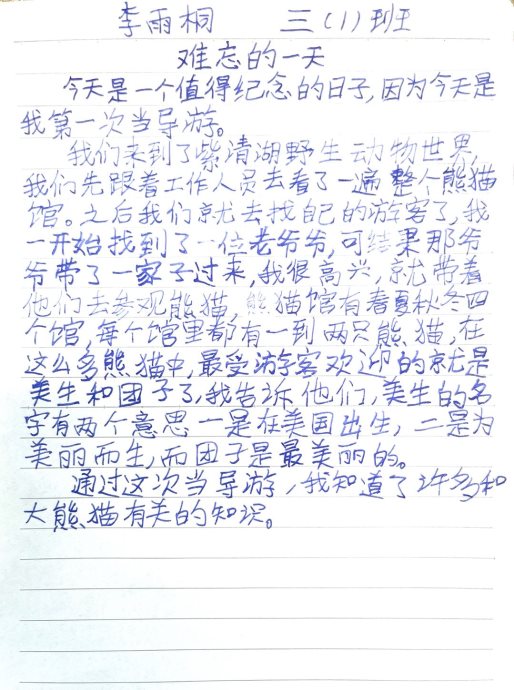 李雨桐 三(1)班
难忘的一天
今天是一个值得纪念的日子,因为今天是
我第一次当导游。
我们来到了紫清湖野生动物世界,
我们先跟着工作人员去看了一遍整个熊猫
馆。之后我们就去找自己的游客了,我
一开始找到了一位老爷爷,可结果那爷
爷带了一家子过来,我很高兴,就带着
他们去参观熊猫,熊猫馆有春夏秋冬四
个馆,每个馆里都有一到两只熊猫,在
这么多熊猫中,最受游客欢迎的就是
美生和团子了,我告诉他们,美生的名
字有两个意思一是在美国出生,二是为
美丽而生,而团子是最美丽的。
通过这次当导游,我知道了许多和
大熊猫有关的知识。